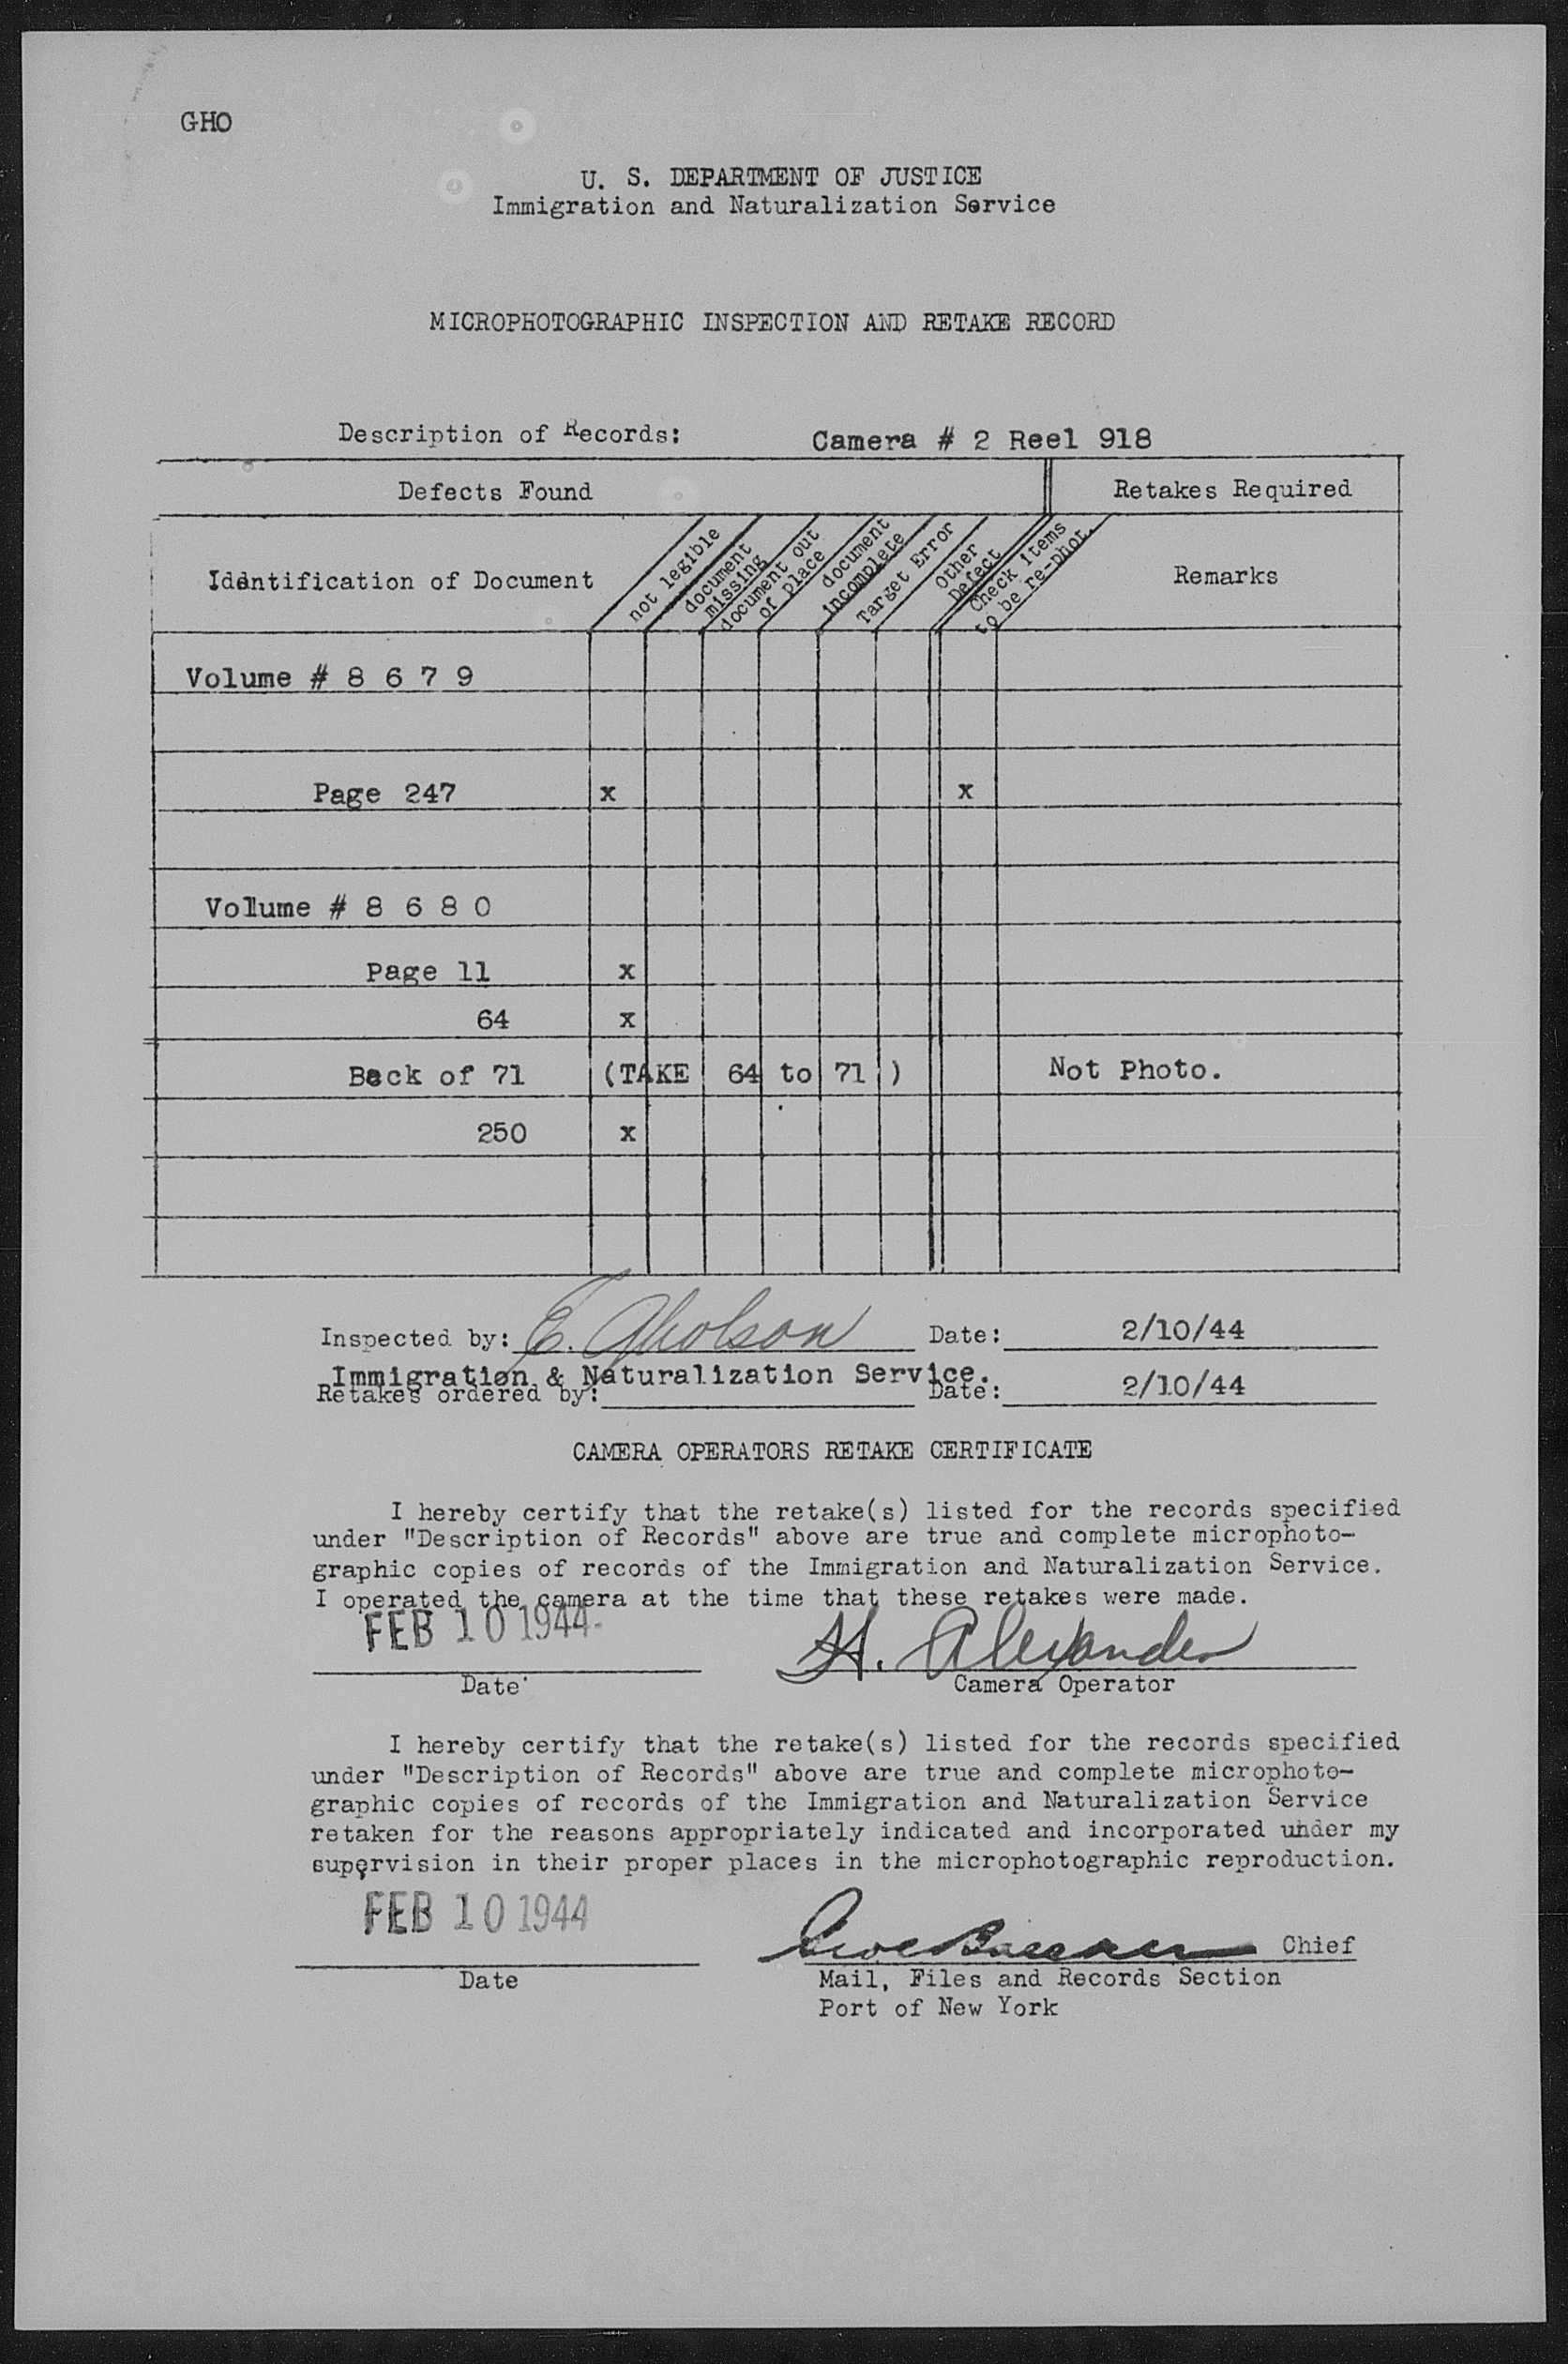 GHO
U. S. DEPARTMENT OF JUSTICE
Immigration and Naturalization Service
MICROPHOTOGRAPHIC INSPECTION AND RETAKE RECORD
Description of Records: Camera # 2 Reel 918
Defects Found Retakes Required
Identification of Document
not legible
document missing
document out of place
document incomplete
Target Error
Other Defect
Check items to be re-phot.
Remarks
Volume # 8 6 7 9
Page 247 x x
Volume # 8 6 8 0
Page 11 x
64 x
Back of 71 (TAKE 64 to 71 ) Not Photo.
250 x
Inspected by: E. Gholson Date: 2/10/44
Immigration & Naturalization Service.
Retakes ordered by: Date: 2/10/44
CAMERA OPERATORS RETAKE CERTIFICATE
I hereby certify that the retake(s) listed for the records specified
under "Description of Records" above are true and complete microphoto-
graphic copies of records of the Immigration and Naturalization Service.
I operated the camera at the time that these retakes were made.
FEB 10 1944 H. Alexander
Date Camera Operator
I hereby certify that the retake(s) listed for the records specified
under "Description of Records" above are true and complete microphoto-
graphic copies of records of the Immigration and Naturalization Service
retaken for the reasons appropriately indicated and incorporated under my
supervision in their proper places in the microphotographic reproduction.
FEB 10 1944
Chief
Date Mail, Files and Records Section
Port of New York